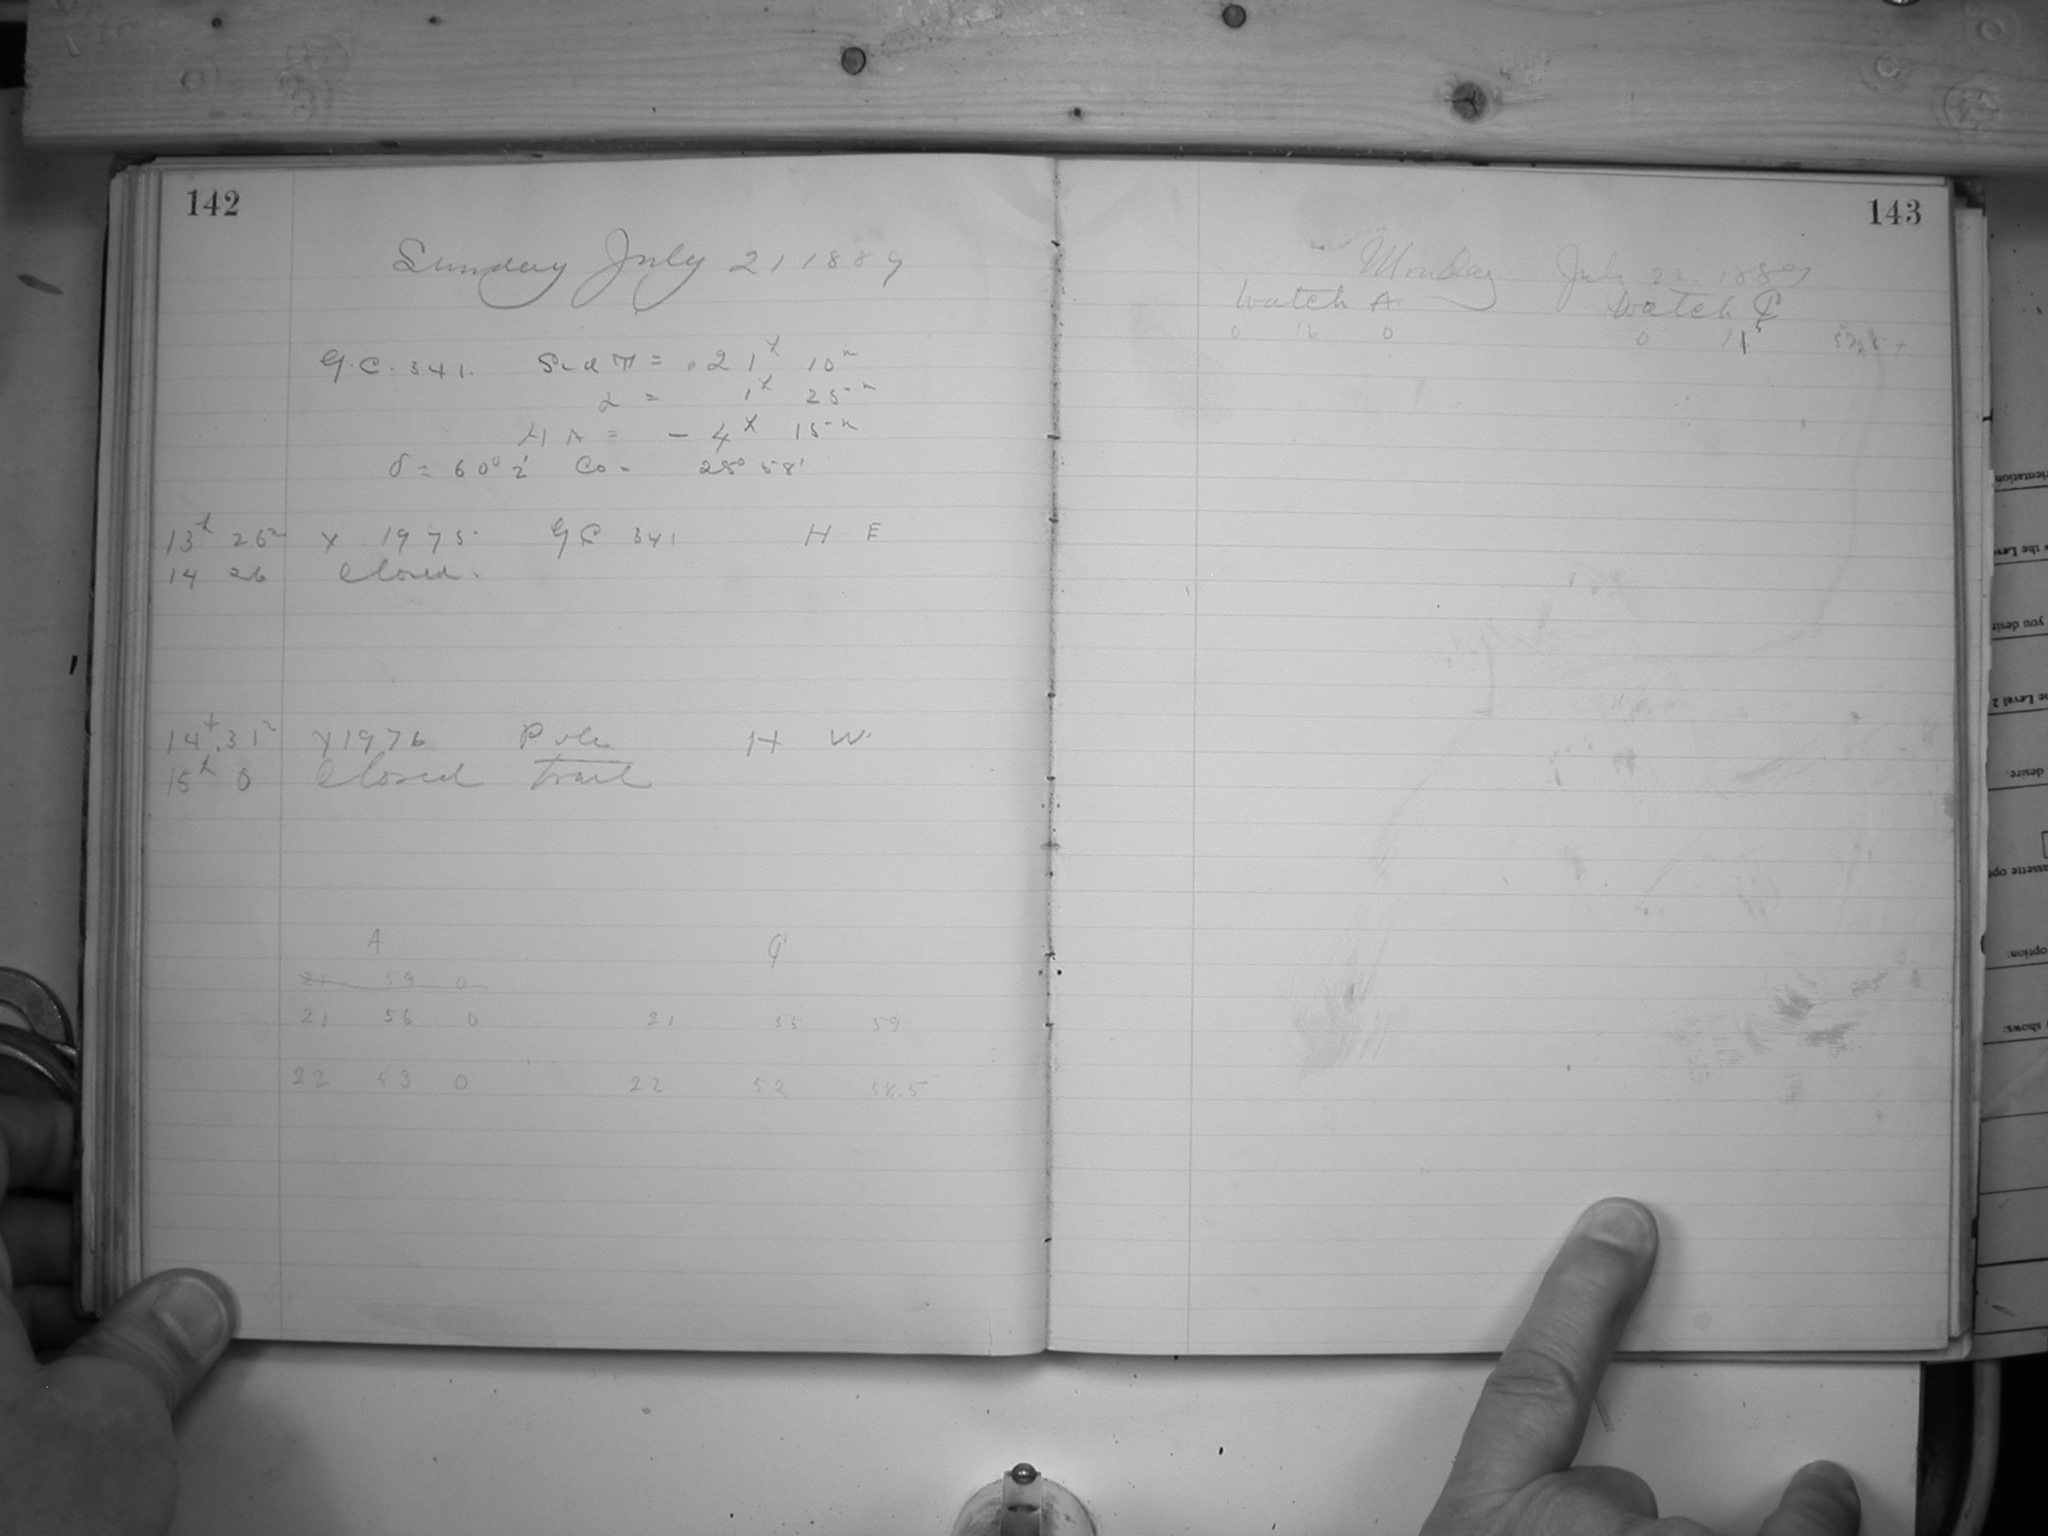 142
Sunday July 21 1889
G.C. 341. Sid T = 21h 10m
α = 1h 25m
H A = - 4h 15m
δ = 60° 2' Co - 28° 58'
13h 26m X 1975 GC 341 H E
14 26 Closed.
14h 31m X1976 Pole H W.
15h 0 Closed trail
A C
21 59 0
21 56 0 21 55 59
22 53 0 22 52 58.5
143
Monday July 22. 1889
Watch A Watch C
0 16 0 0 15